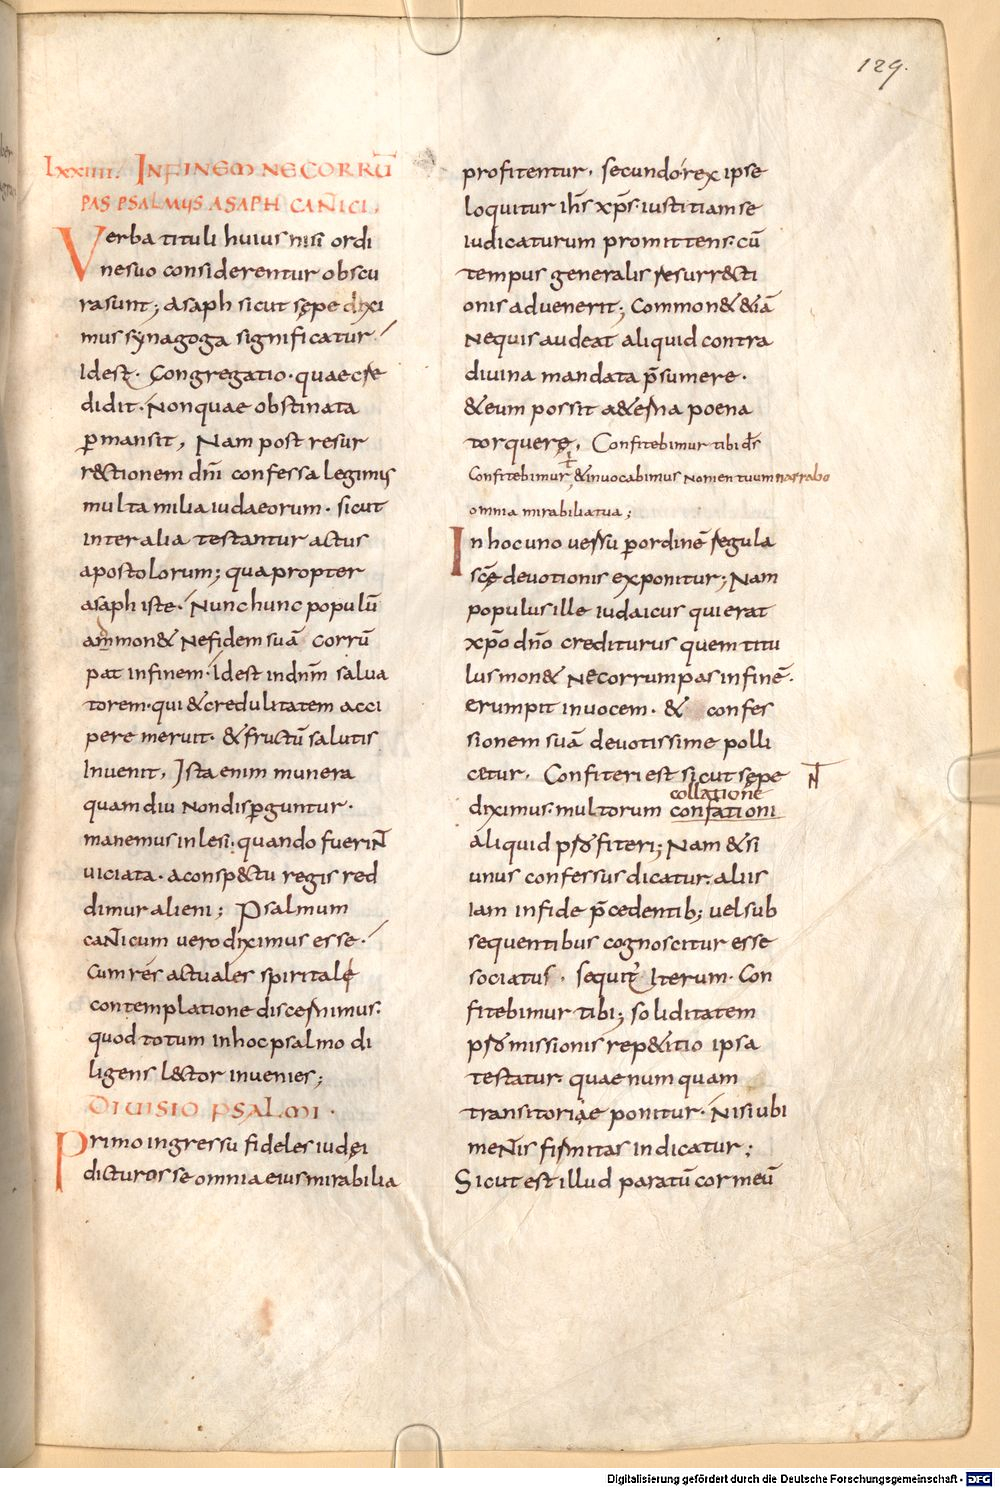 129.
LXXIIII. INFINEM NECORRŪ
PAS PSALMUS ASAPH CAÑICI.
Verba tituli huius nisi ordi
nesuo considerentur obscu
rasunt; asaph sicut sępe dixi
mus synagoga significatur·
Idest· Congregatio· quaecre
didit· Nonquae obstinata
p̲mansit, Nam post resur
r&ctionem dn̄i confessa legimus
multa milia iudaeorum· sicut
interalia testantur actus
apostolorum; quapropter
asaph iste· Nunc hunc populū
ammon& Nefidem suā corrū
pat infinem· Idest indn̄m salua
torem· qui & credulitatem acci
pere meruit· & fructū salutis
Inuenit, Ista enim munera
quamdiu Nondisp̲guntur·
manemus inlesi· quando fuerinT
uiciata· aconsp&ctu regis red
dimur alieni; Psalmum
caÑicum uero diximus esse·
Cum rés actuales spiritalę
contemplatione discernimus·
quod totum inhoc psalmo di
ligens l&ctor inuenies;
DIUISIO PSALMI·
Primo ingressu fideles iudęi
dicturos se omnia eius mirabilia
profitentur· secundo rex ipse
loquitur ih̄s xp̄s iustitiam se
iudicaturum promittens· cū
tempus generalis resurr&cti
onis aduenerit; Common& &iā
Nequis audeat aliquid contra
diuina mandata p̄sumere·
&eum possit a&erna poena
torquere, Confitebimur tibi ds̄
Confitebimur, &inuocabimus Nomen tuum narrabo
omnia mirabilia tua;
In hoc uno uersu p̲ordinē regula
scę̄ deuotionis exponitur; Nam
populus ille iudaicus qui erat
xp̄o dn̄o crediturus quem titu
lus mon& Necorrumpas infinē·
erumpit inuocem· & confes
sionem suā deuotissime polli
cetur· Confiteri est sicut sępe
collatione
diximus· multorum confationi
aliquid profiteri; Nam &si
unus confessus dicatur· aliis
Iam infide p̄cedentib; uel sub
sequentibus cognoscitur esse
sociatus· sequit̄ Iterum· Con
fitebimur tibi; soliditatem
promissionis rep&itio ipsa
testatur· quae num quam
transitoriae ponitur· Nisi ubi
meÑis firmitas indicatur;
Sicut est illud paratū cor meū
Digitalisierung gefördert durch die Deutsche Forschungsgemeinschaft - DFG